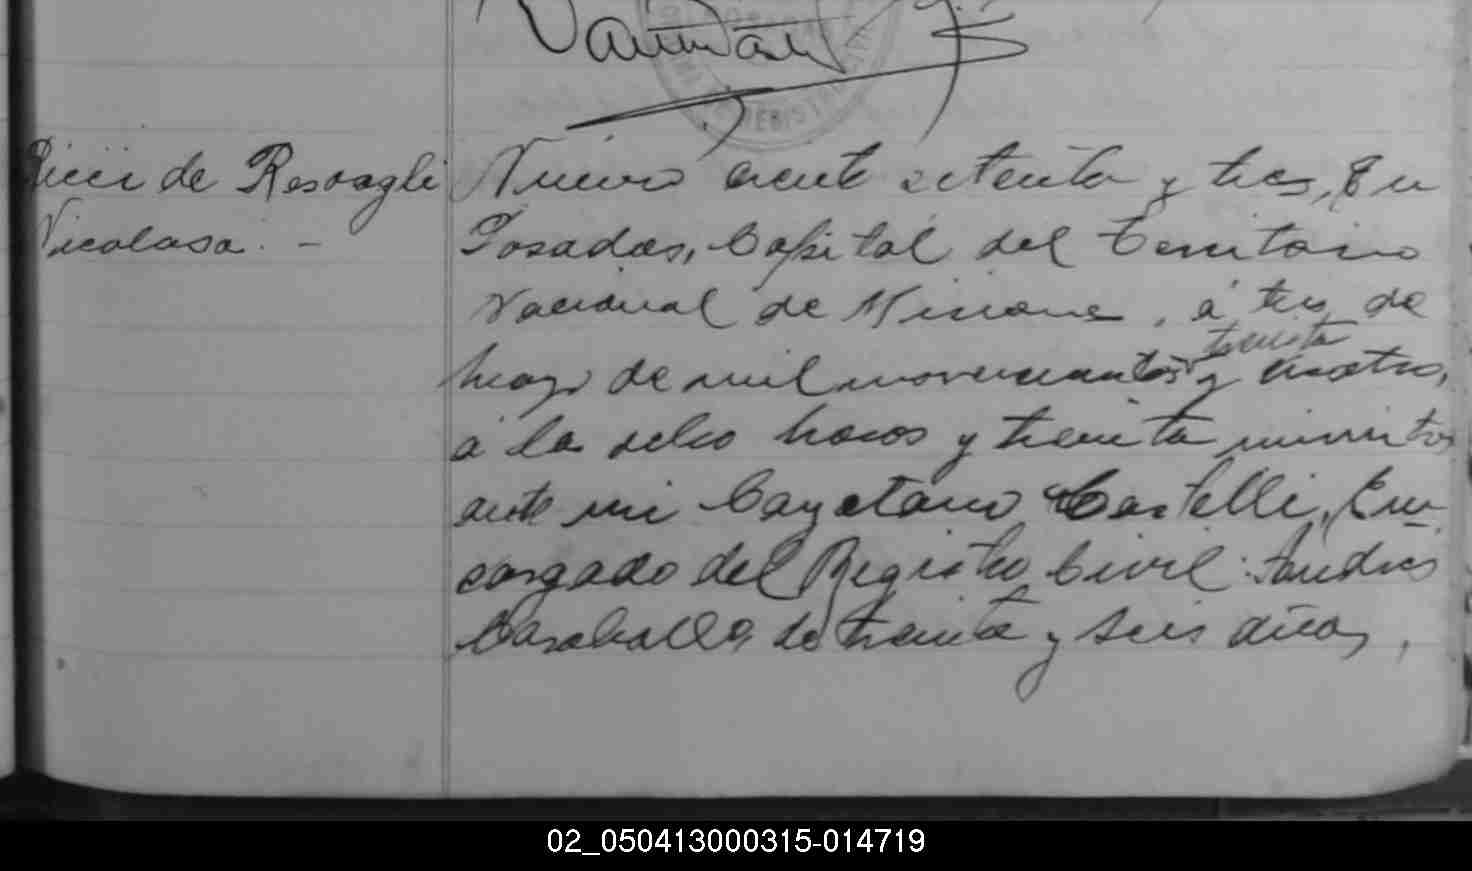 Ricci de Resoagli
Nicolasa. -
Número ciento setenta y tres, En
Posadas, Capital del Territorio
Nacional de Misiones, á tres de
mayo de mil novecientos treinta y cuatro,
á las ocho horas y treinta minutos
ante mi Cayetano Castelli, En
cargado del Registro Civil: Andrés
Caraballo, de treinta y seis años,
02_050413000315-014719